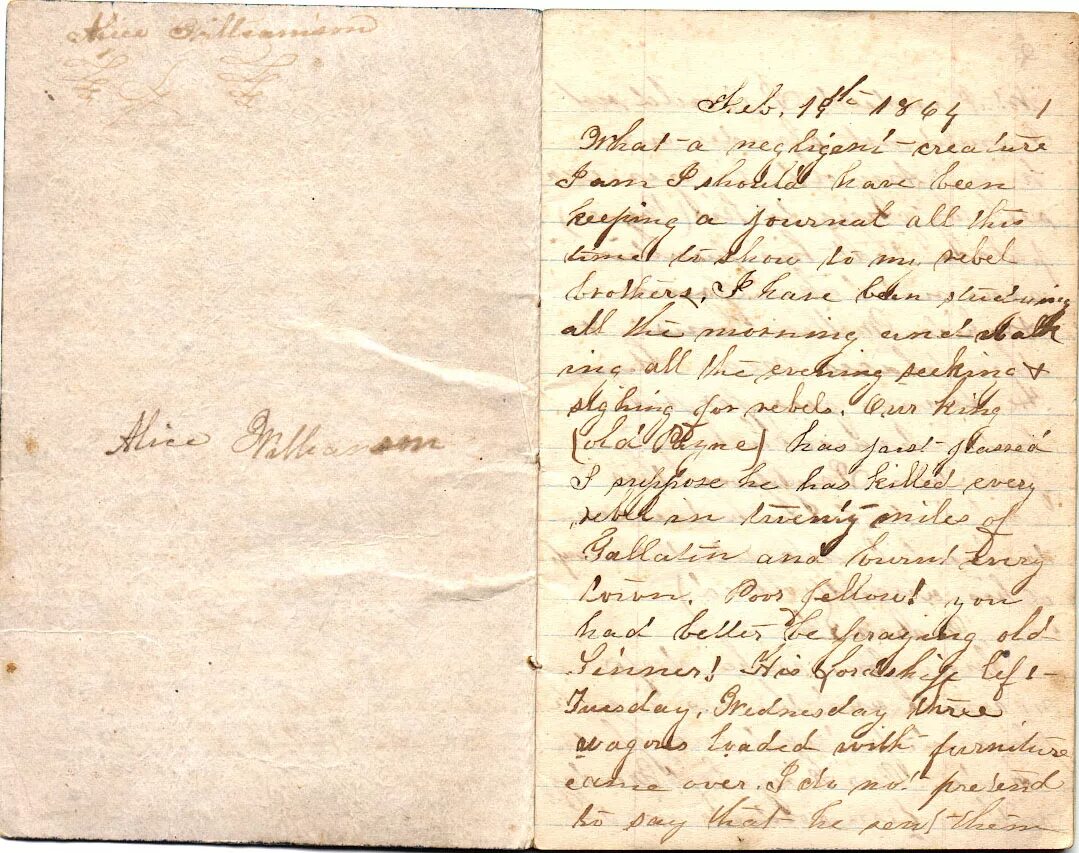 Alice Williamson
Alice Williamson
Feb. 19th 1864 1
What a negligent creature
I am I should have been
keeping a journal all this
time to show to my rebel
brothers. I have been studying
all the morning and talk
ing all the evening seeking &
sighing for rebels. Our king
(old Payne) has just passed
I suppose he has killed every
rebel in twenty miles of
Gallatin and burnt every
town. Poor fellow! you
had better be praying old
Sinner! His Lordship left
Tuesday. Wednesday three
wagons loaded with furniture
came over. I do not pretend
to say that he sent them